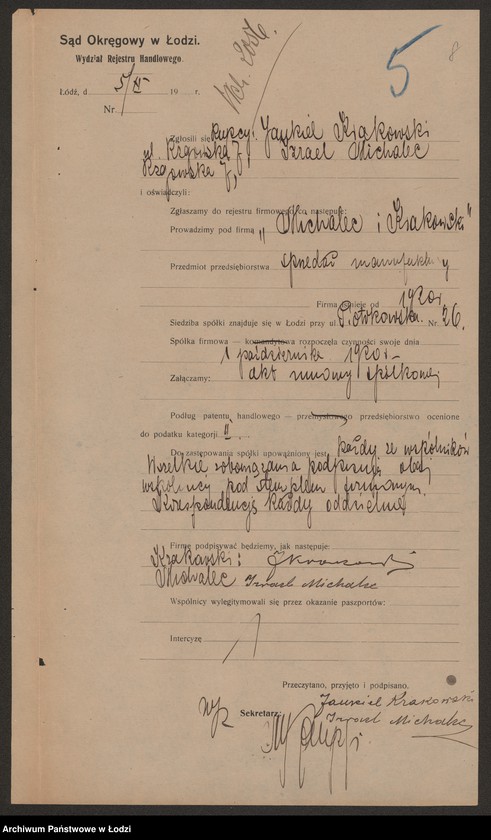 5
8
Sąd Okręgowy w Łodzi.
Wydział Rejestru Handlowego.
Łódź, d 5/XI 19 r.
Nr.
Zgłosili się kupcy: Jankiel Krakowski
ul. Krgowska 7, Izrael Michalec
Krgowska 7,
i oświadczyli:
Zgłaszamy do rejestru firmowego co następuje:
Prowadzimy pod firmą „Michalec i Krakowski"
Przedmiot przedsiębiorstwa sprzedaż manufaktury
Firma istnieje od 1920r
Siedziba spółki znajduje się w Łodzi przy ul. Piotrkowska Nr. 26.
Spółka firmowa — komandytowa rozpoczęła czynności swoje dnia
1 października 1920r—
Załączamy: akt umowy spółkowej
Podług patentu handlowego — przemysłowego przedsiębiorstwo ocenione
do podatku kategorji II
Do zastępowania spółki upoważniony jest każdy ze wspólników
Wszelkie zobowiązania podpisują obaj
wspólnicy pod stemplem firmowym.
Korespondencję każdy oddzielnie
Firmę podpisywać będziemy, jak następuje:
Krakowski: JKrakowski
Michalec Izrael Michalec
Wspólnicy wylegitymowali się przez okazanie paszportów:
Intercyzę
Przeczytano, przyjęto i podpisano.
Jankiel Krakowski
Sekretarz: Izrael Michalec
Archiwum Państwowe w Łodzi